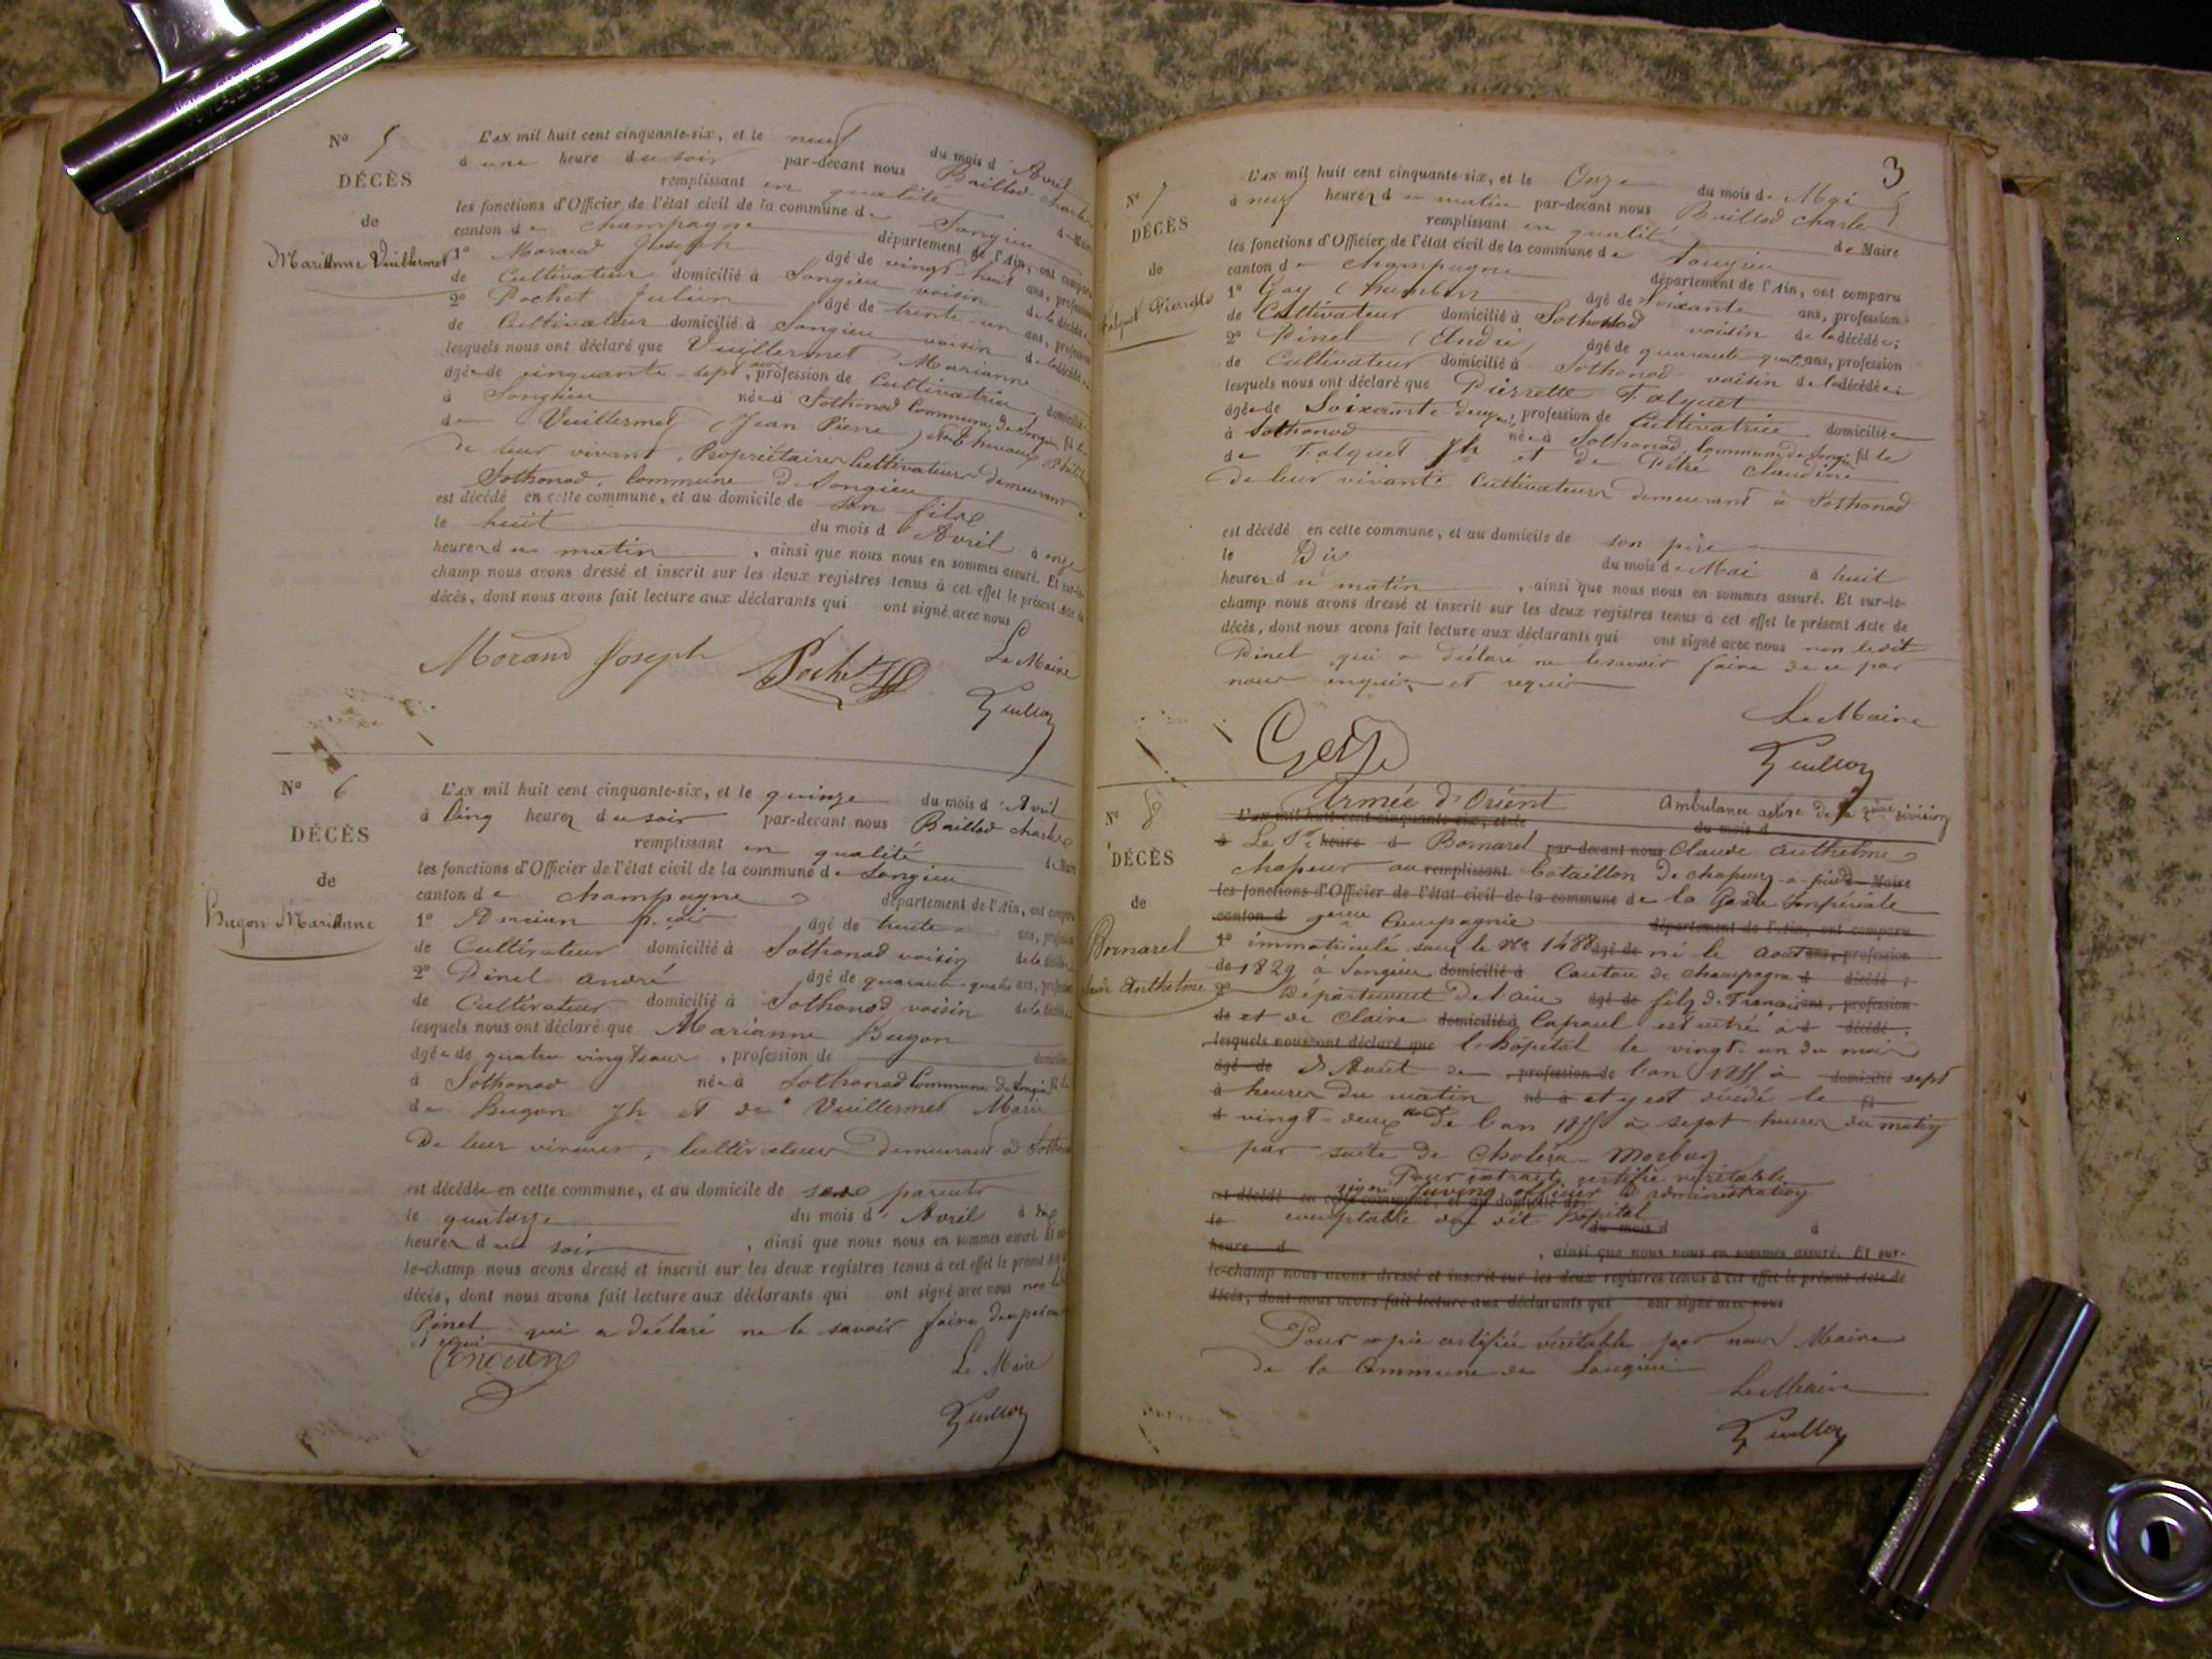 N° 5
DÉCÈS
de
Marianne Vuillermet
L'AN mil huit cent cinquante-six, et le neuf du mois d'Avril
à une heure du soir par-devant nous Baillod Charles
remplissant en qualité de Maire
les fonctions d'Officier de l'état civil de la commune de Songieu
canton de Champagne département de l'Ain, ont comparu
1° Morand Joseph âgé de vingt-huit ans, profession
de Cultivateur domicilié à Songieu voisin de la décédée
2° Pochet Julien âgé de trente-un ans, profession
de Cultivateur domicilié à Songieu voisin de la décédée
lesquels nous ont déclaré que Vuillermet Marianne
âgée de cinquante-sept ans, profession de Cultivatrice domiciliée
à Songieu née à Sothonod Commune de Songieu fille
de Vuillermet (Jean Pierre)
de leur vivant, Propriétaires Cultivateurs demeurant à
Sothonod, Commune de Songieu
est décédé en cette commune, et au domicile de son fils
le huit du mois d'Avril à onze
heures du matin, ainsi que nous nous en sommes assuré. Et sur-le-
champ nous avons dressé et inscrit sur les deux registres tenus à cet effet le présent Acte de
décès, dont nous avons fait lecture aux déclarants qui ont signé avec nous
Morand Joseph Pochet Le Maire
N° 6
DÉCÈS
de
Bugon Marianne
L'AN mil huit cent cinquante-six, et le quinze du mois d'Avril
à Cinq heures du soir par-devant nous Baillod Charles
remplissant en qualité de Maire
les fonctions d'Officier de l'état civil de la commune de Songieu
canton de Champagne département de l'Ain, ont comparu
1° Ancian f.çois âgé de trente ans, profession
de Cultivateur domicilié à Sothonod voisin de la décédée
2° Pinel André âgé de quarante-quatre ans, profession
de Cultivateur domicilié à Sothonod voisin de la décédée
lesquels nous ont déclaré que Marianne Bugon
âgée de quatre vingts ans, profession de domiciliée
à Sothonod née à Sothonod Commune de Songieu fille
de Bugon Jh et de Vuillermet Marie
De leur vivant, Cultivateurs Demeurant à Sothonod
est décédée en cette commune, et au domicile de ses parents
le quatorze du mois d'Avril à dix
heures du soir, ainsi que nous nous en sommes assuré. Et sur-
le-champ nous avons dressé et inscrit sur les deux registres tenus à cet effet le présent Acte de
décès, dont nous avons fait lecture aux déclarants qui ont signé avec nous non ledit
Pinel qui a déclaré ne le savoir faire
Ancian
Le Maire
3
N° 7
DÉCÈS
de
Falquet Pierrette
L'AN mil huit cent cinquante-six, et le Onze du mois de Mai
à neuf heures du matin par-devant nous Baillod Charles
remplissant en qualité de Maire
les fonctions d'Officier de l'état civil de la commune de Songieu
canton de Champagne département de l'Ain, ont comparu
1° Gay (Humbert) âgé de Soixante ans, profession
de Cultivateur domicilié à Sothonod voisin de la décédée;
2° Pinel (André) âgé de quarante quatre ans, profession
de Cultivateur domicilié à Sothonod voisin de la décédée;
lesquels nous ont déclaré que Pierrette Falquet
âgée de Soixante deux ans, profession de Cultivatrice domiciliée
à Sothonod née à Sothonod, Commune de Songieu fille
de Falquet Jh et de Claudine
de leur vivant Cultivateurs demeurant à Sothonod
est décédé en cette commune, et au domicile de son père
le Dix du mois de Mai à huit
heures du matin, ainsi que nous nous en sommes assuré. Et sur-le-
champ nous avons dressé et inscrit sur les deux registres tenus à cet effet le présent Acte de
décès, dont nous avons fait lecture aux déclarants qui ont signé avec nous non ledit
Pinel qui a déclaré ne le savoir faire de ce par
nous enquis et requis
Le Maire
Gay
N° 8
DÉCÈS
de
Bornarel
Claude Anthelme
Armée d'Orient Ambulance active de la 2ème division
L'AN mil huit cent cinquante-six, et le du mois d
à Le Sr heure d Bornarel par-devant nous Claude Anthelme
chasseur au remplissant bataillon de chasseurs à pied de Maire
les fonctions d'Officier de l'état civil de la commune de la Garde Impériale
canton d Compagnie département de l'Ain, ont comparu
1° immatriculé sous le No 1488 âgé de né le août ans, profession
de 1829 à Songieu domicilié à Canton de Champagne d décédé;
2° Département de l'ain âgé de fils de François ans, profession
de et de Claire domicilié à Capaul est entré à d décédé;
lesquels nous ont déclaré que l'hôpital le vingt-un du mois
âgé de d'Août de, profession de l'an 1855 à domicilié sept
à heures du matin né à et y est décédé le fil
d vingt-deux de l'an 1855 à sept heures du matin
par suite de Choléra Morbus
Pour extrait certifié véritable
est décédé en cette commune, et au domicile de signé officier d'administration
le comptable du dit hôpital du mois d à
heure d, ainsi que nous nous en sommes assuré. Et sur-
le-champ nous avons dressé et inscrit sur les deux registres tenus à cet effet le présent Acte de
décès, dont nous avons fait lecture aux déclarants qui ont signé avec nous
Pour copie certifiée véritable par nous Maire
de la Commune de Songieu
Le Maire